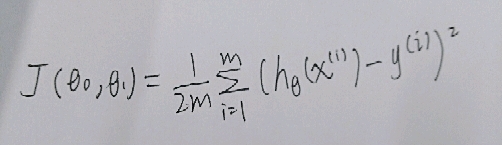 J(θ₀,θ₁) = \frac{1}{2m} \sum_{i=1}^{m} (h_θ(x^{(i)}) - y^{(i)})^2